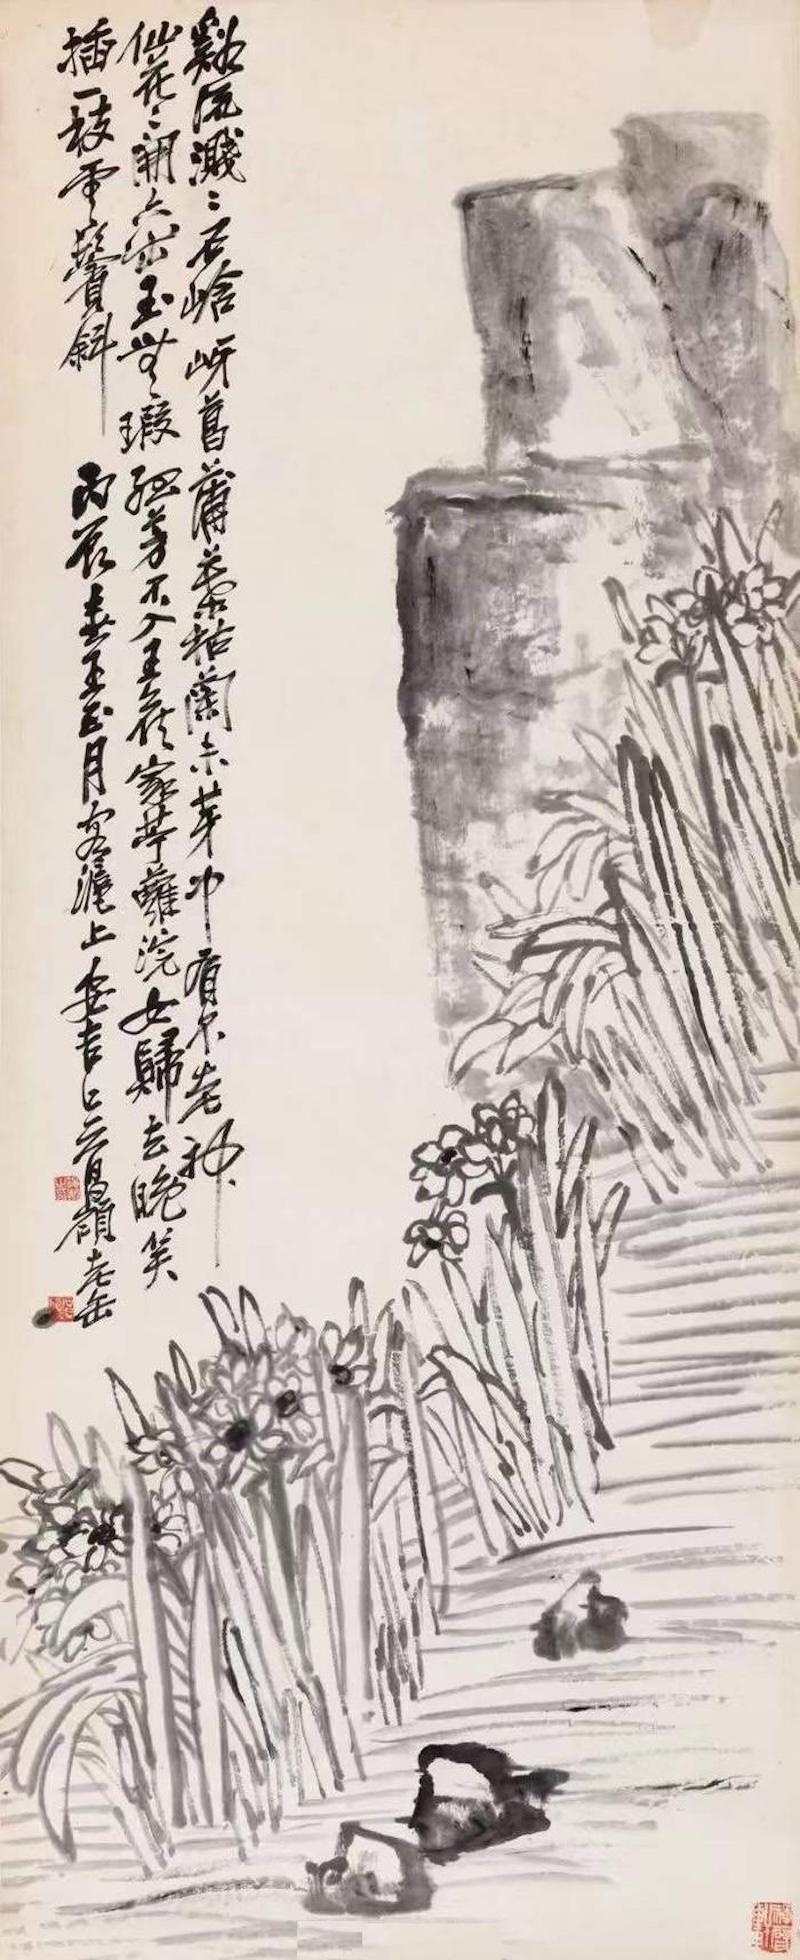 谿流濺〻石谽岈菖蒲葉枯蘭未芽中有不老神
仙花〻開六出玉無瑕孤芳不入王侯家苧蘿浣女歸去晚笑
插一枝雲鬢斜 丙辰春王正月客滬上安吉吳昌碩老缶